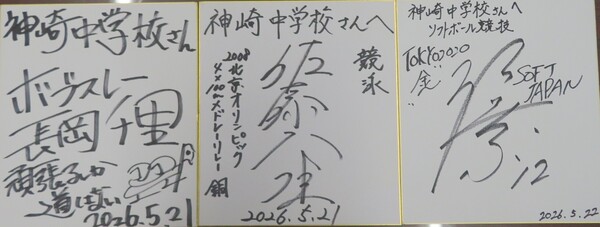 神崎中学校さん
ボブスレー
長岡千里
頑張るしか
道はない
2026.5.21
神崎中学校さんへ
競泳
佐藤久佳
2008北京オリンピック
4×100mメドレーリレー 銅
2026.5.21
神崎中学校さんへ
ソフトボール競技
TOKYO2020
"金"
SOFT
JAPAN
12
2026.5.22